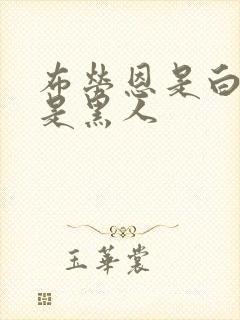 布莹恩是白
是黑人
玉華裳